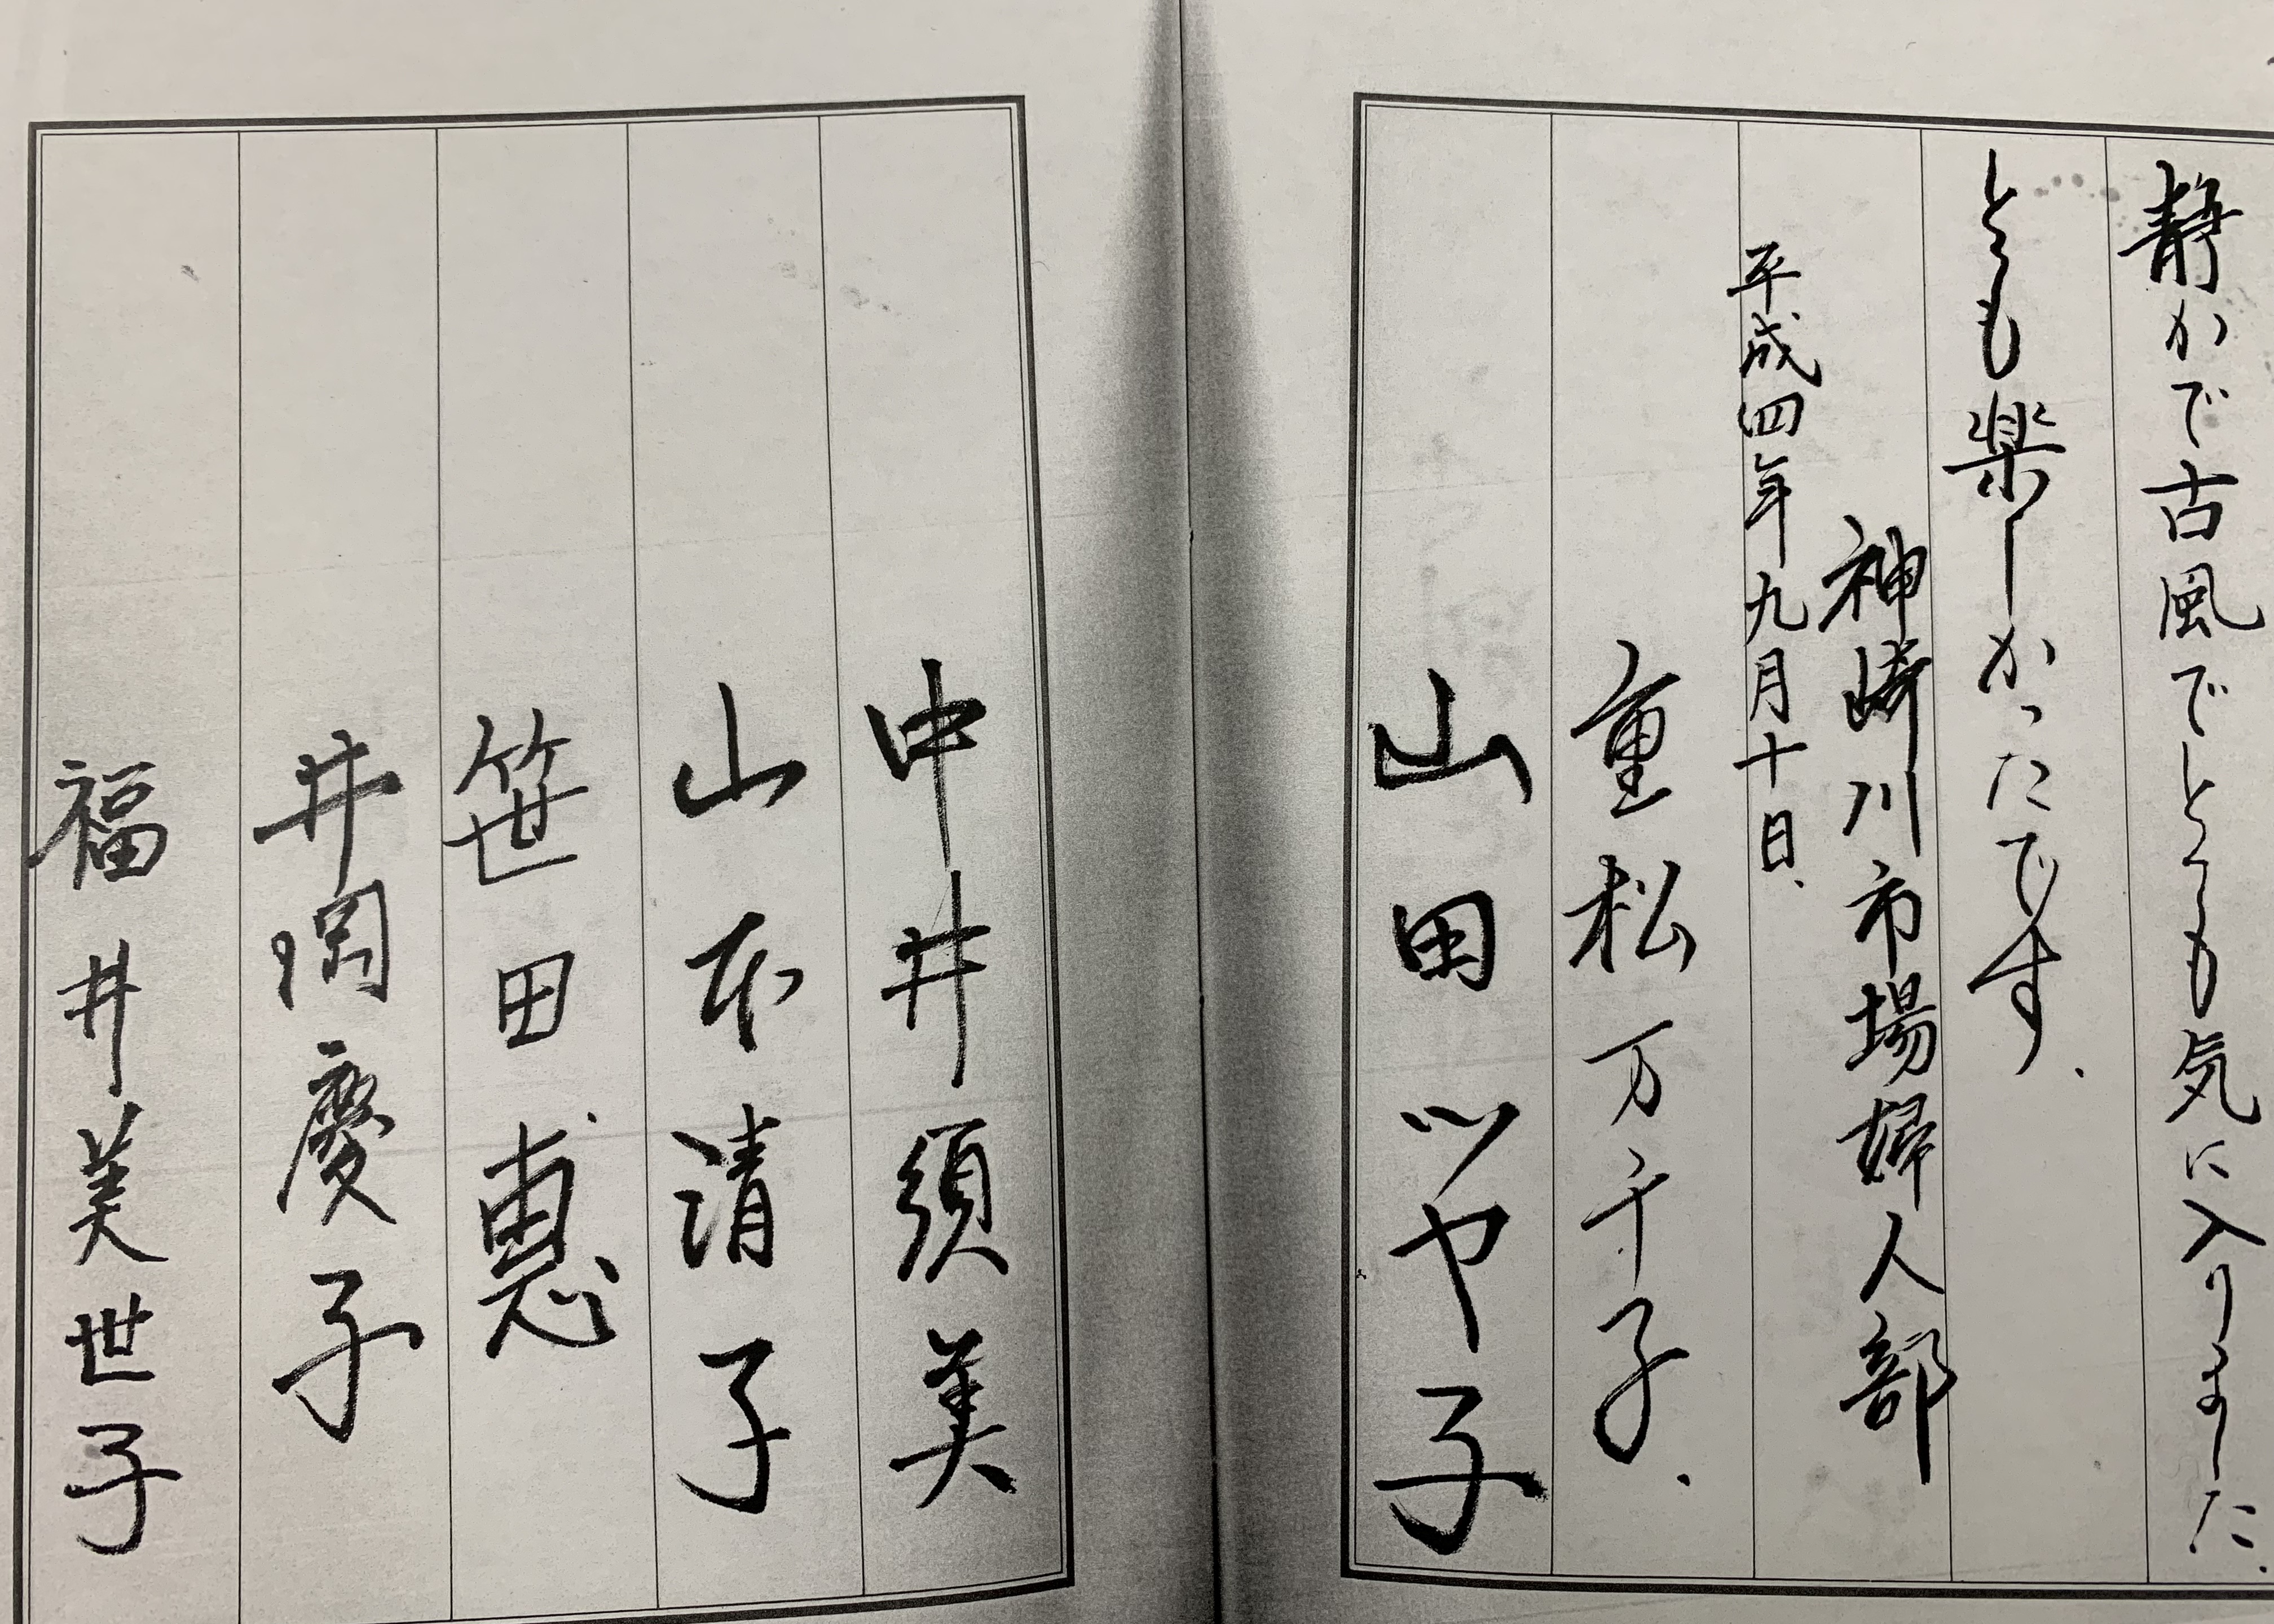 静かで古風でとても気に入りました.
とても楽しかったです.
神崎川市場婦人部
平成四年九月十日.
重松万千子.
山田ツヤ子
中井須美
山本清子
笹田恵
井岡慶子
福井美世子